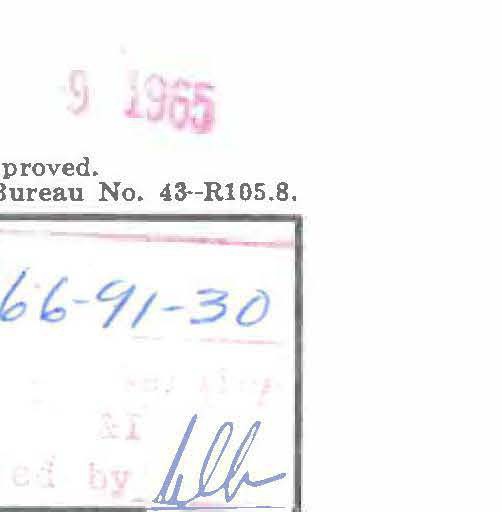 9 1965
proved.
Bureau No. 43--R105.8.
66-91-30
&I
ed by